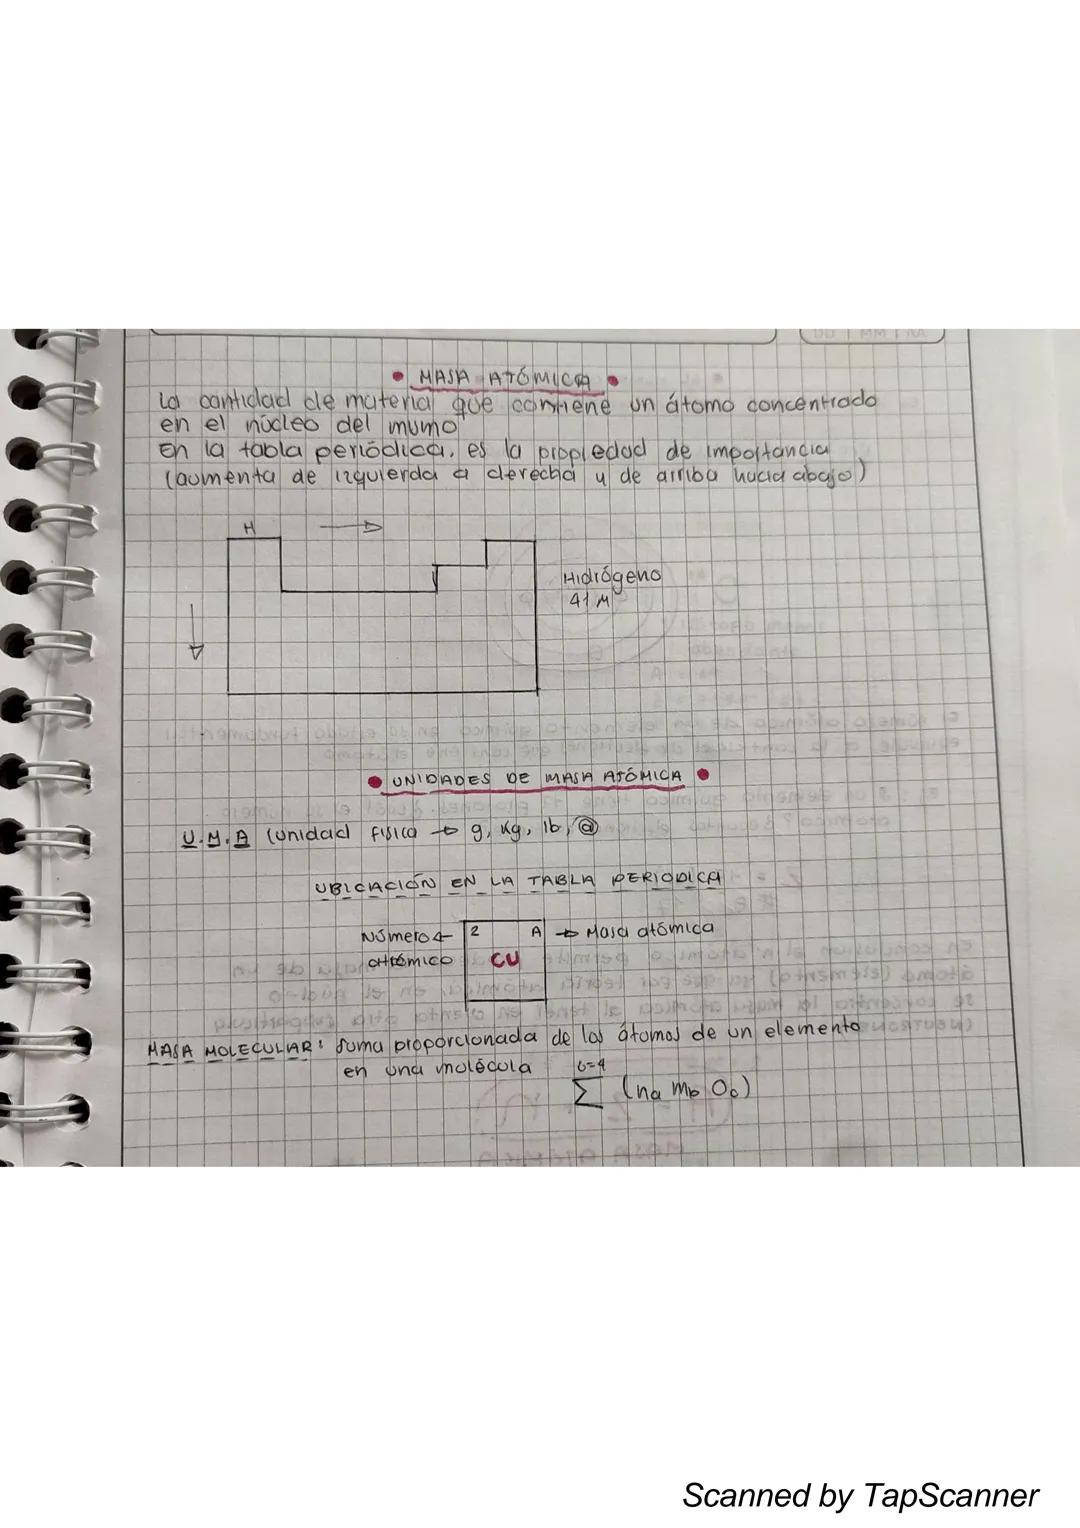 • MASA ATÓMICA •
La cantidad de materia que contiene un átomo concentrado
en el núcleo del mismo
En la tabla periódica, es la propiedad de importancia
(aumenta de izquierda a derecha y de arriba hacia abajo)
H
Hidrógeno
• UNIDADES DE MASA ATÓMICA •
U.M.A (Unidad física → g, Kg, lb, @
UBICACIÓN EN LA TABLA PERIODICA
Número ← 2 A → Masa atómica
atómico CU
MASA MOLECULAR: Suma proporcionada de los átomos de un elemento
en una molécula
∑ (na mb Oc)
Scanned by TapScanner